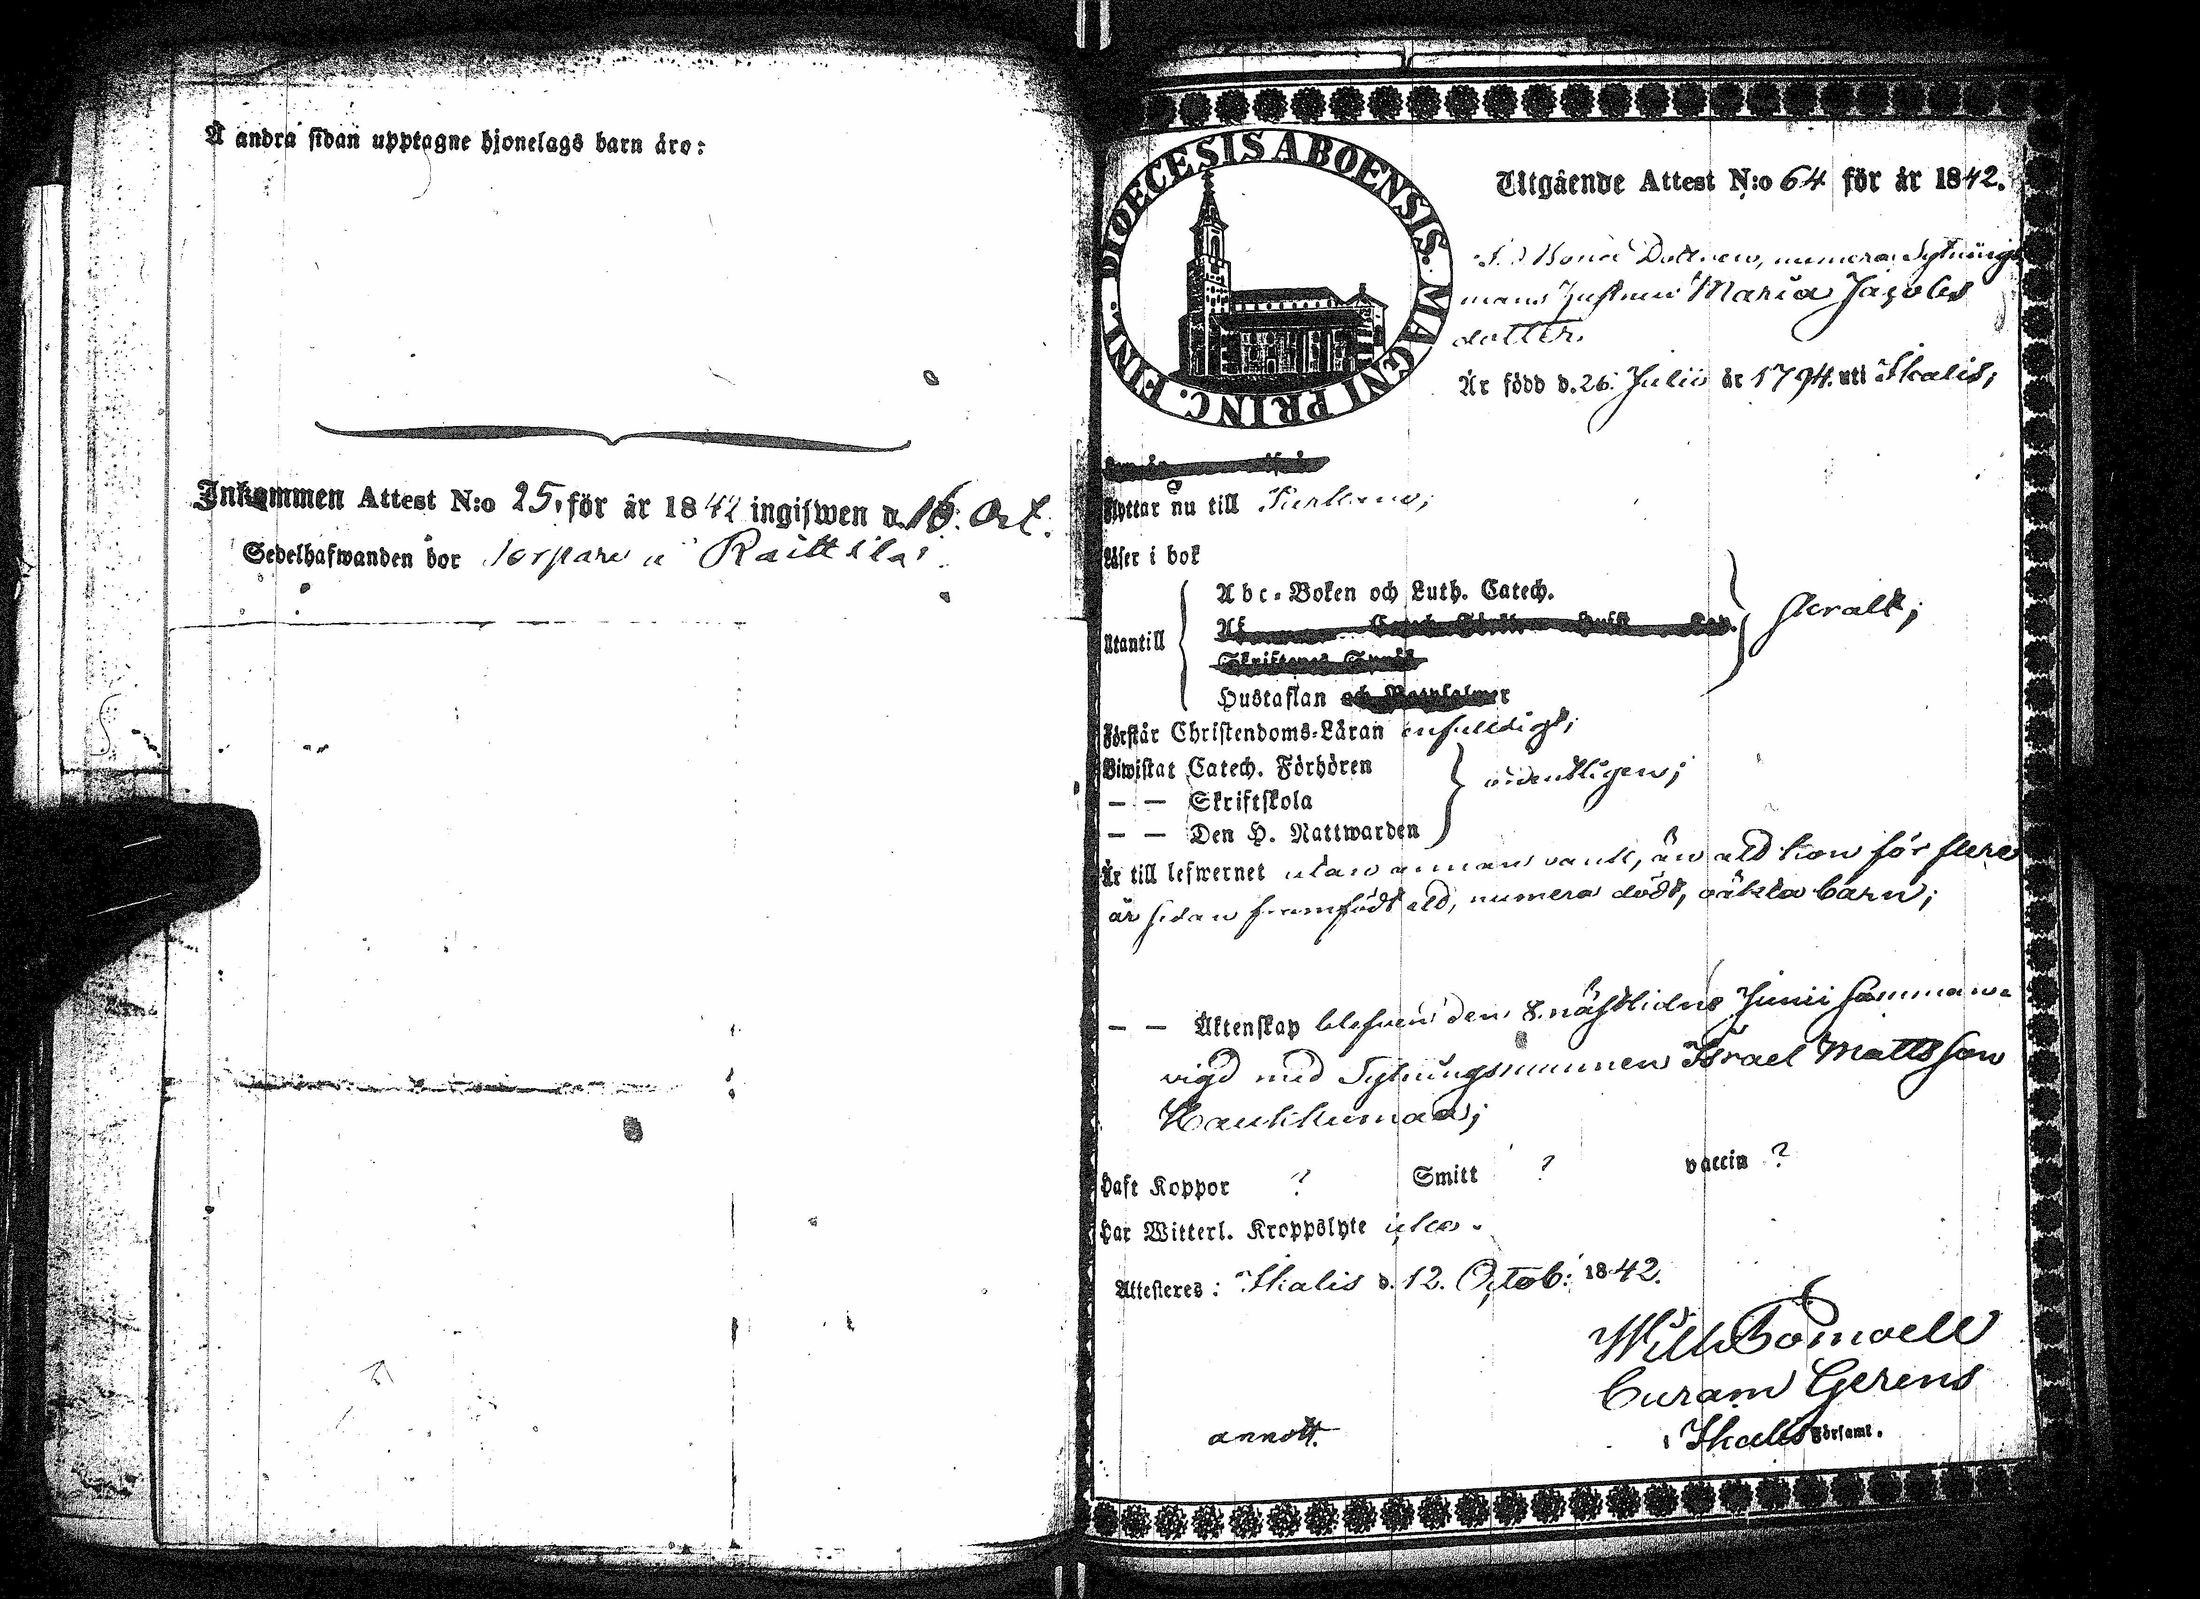 Å andra sidan upptagne hjonelags barn äro:
Inkommen Attest N:o 25, för år 1842 ingifwen d. 16. Oct.
Sedelhafwanden bor Torpare i Raittila.
DIOECESIS ABOENSIS. MAGNI PRINC. FINL.
Utgående Attest N:o 64 för år 1842.
Bonde Dottren, numera Sytnings
mans Hustrun Maria Jacobs
dotter.
Är född d. 26. Julii år 1794. uti Ikalis;
Flyttar nu till
Läser i bok
Utantill
Abc-Boken och Luth. Catech.
Skriftenes Språk
Hustaflan och r
svalt;
Förstår Christendoms-Läran enfaldigt;
Biwistat Catech. Förhören
— — Skriftskola
— — Den H. Nattwarden
ordentligen;
Är till lefwernet utan annan vank, än att hon för flere
år sedan framfödt ett, numera dödt, oäkta barn;
— — Äktenskap blefven den 8. nästlidne Junii samman-
vigd med Sytningsmannen Israel Mattsson
Haukkamaa;
Haft Koppor ? Smitt ? vaccin ?
Har Witterl. Kroppslyte utan.
Attesteres: Ikalis d. 12. Octob: 1842.
Wilh Bomoell
Curam Gerens
i Ikalis Församl.
annott.